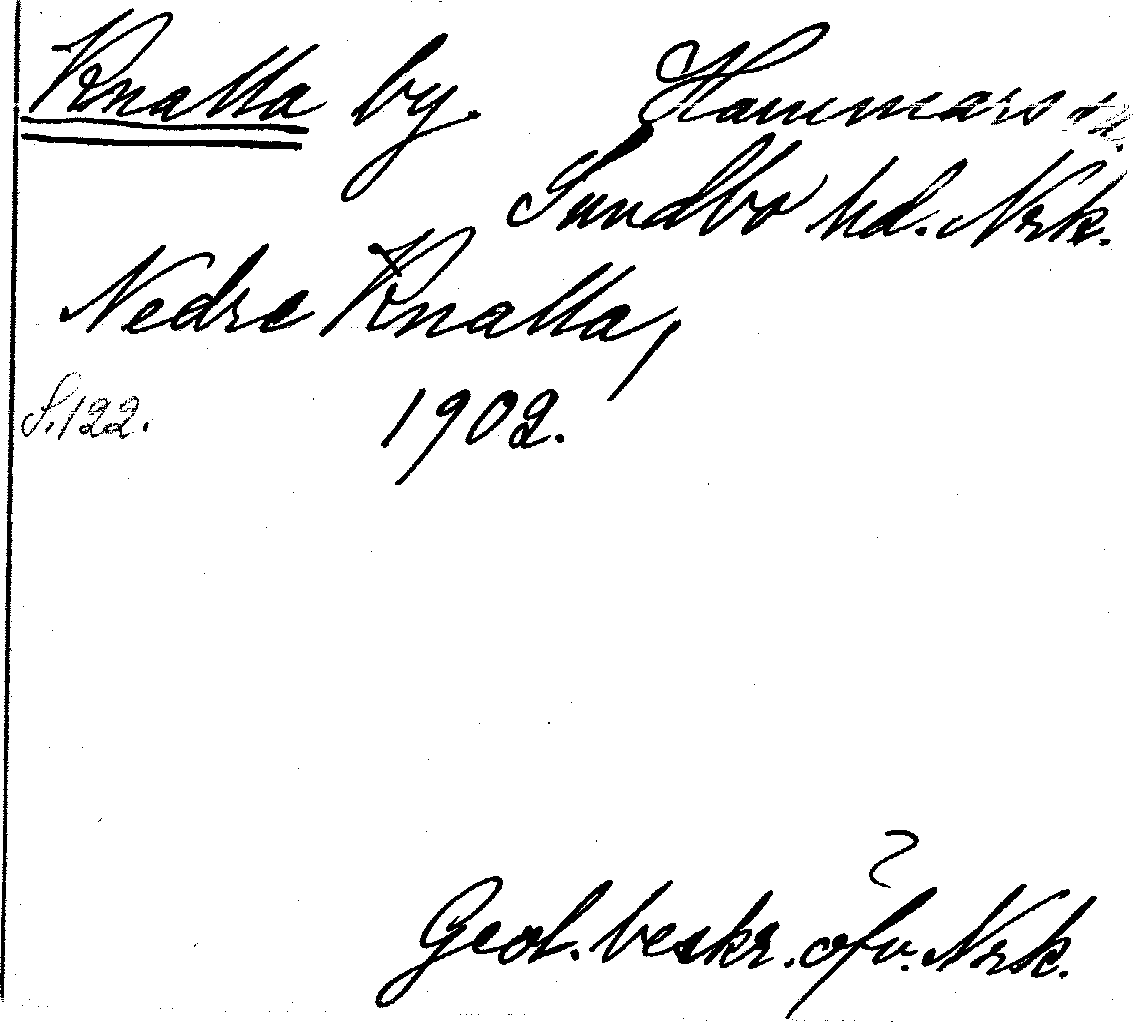 Knalla by. Hammars sn.
Sundbo hd. Nrk.
Nedre Knalla,
S. 122. 1902.
Geol. beskr. öfv. Nrk.